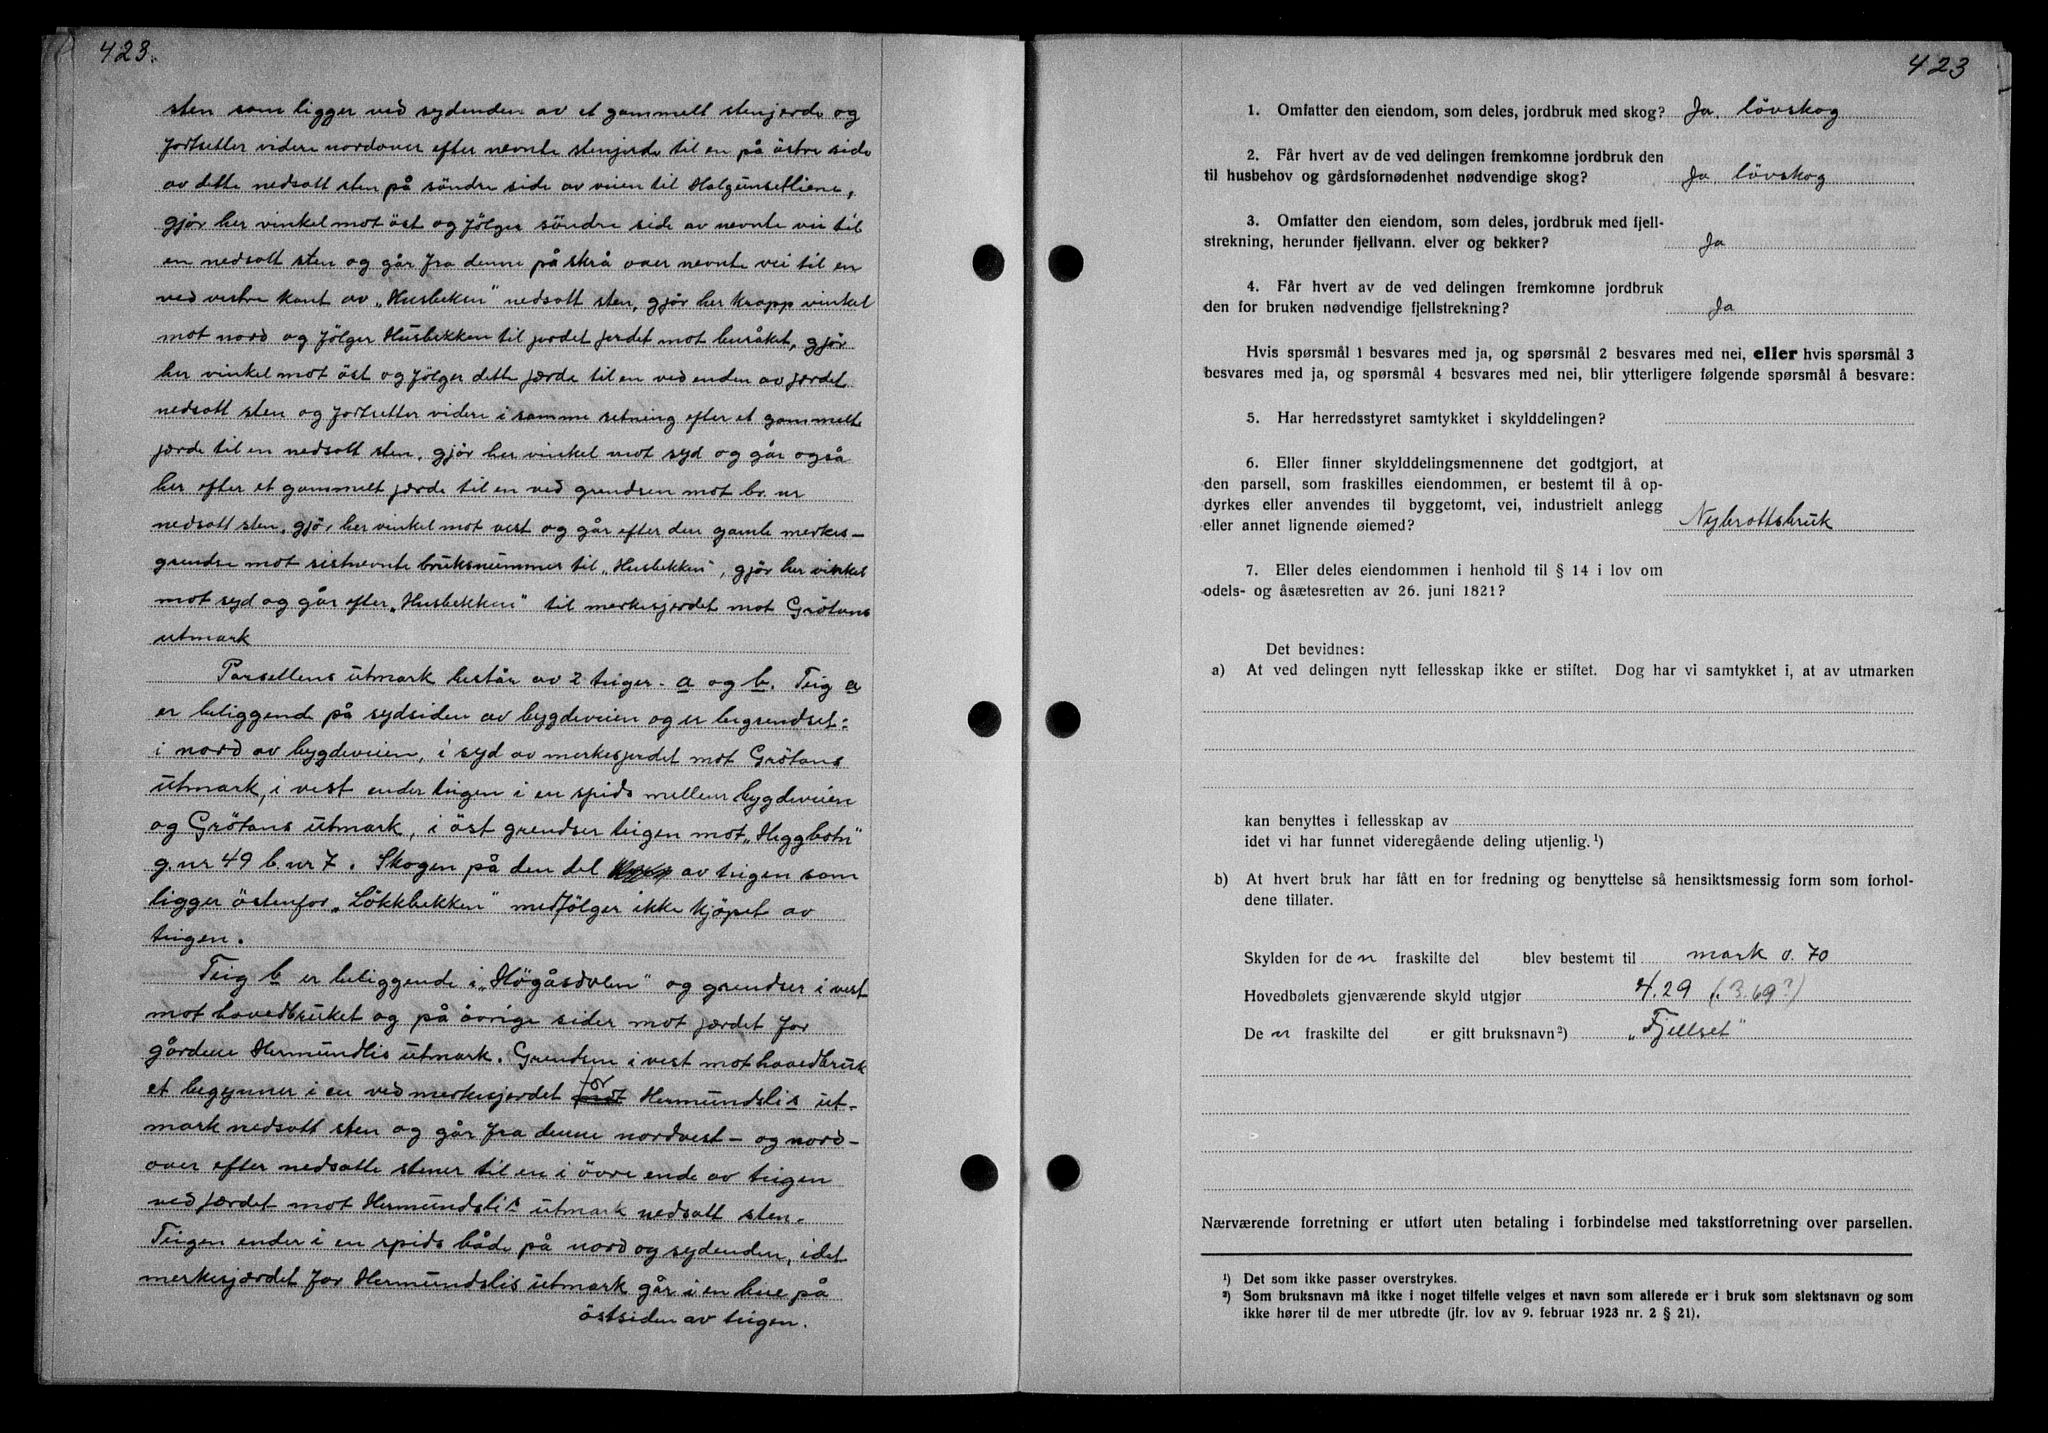 423.
sten som ligger ved sydenden av et gammelt stenjerde og
fortsetter videre nordover efter nevnte stenjerde til en på östre side
av dette nedsatt sten på söndre side av veien til
gjör her vinkel mot öst og fölger söndre side av nevnte vei til
en nedsatt sten og går fra denne på skrå over nevnte vei til en
ved vestre kant av „Husbekken" nedsatt sten, gjör her knapp vinkel
mot nord og fölger Husbekken til jordet mot gjör
her vinkel mot öst og fölger dette jærde til en ved enden av jærdet
nedsatt sten og fortsetter videre i samme retning efter et gammelt
jærde til en nedsatt sten, gjör her vinkel mot syd og går også
her efter et gammelt jærde til en ved grendsen mot br. nr
nedsatt sten, gjör her vinkel mot vest og går efter den gamle merkes-
grendse mot sistnevnte bruksnummer til „Husbekken", gjör her vinkel
mot syd og går efter „Husbekken" til merkesjerdet mot Grötans
utmark
Parsellens utmark består av 2 teiger - a og b. Teig a
er beliggend på sydsiden av bygdeveien og er begrendset:
i nord av bygdeveien, i syd av merkesjerdet mot Grötans
utmark, i vest ender teigen i en spids mellem bygdeveien
og Grötans utmark, i öst grendser teigen mot „Heggbotn"
g.nr 49 b.nr 7. Skogen på den del av teigen som
ligger östenfor „Lökkbekken" medfölger ikke kjöpet av
teigen.
Teig b er beliggende i „Högåsdalen" og grendser i vest
mot hovedbruket og på övrige sider mot jærdet for
gårdene Hermundlis utmark. Grendsen i vest mot hovedbruk
et begynner i en ved merkesjerdet mot for Hermundslis ut-
mark nedsatt sten og går fra denne nordvest- og nord-
over efter nedsatte stener til en i övre ende av teigen
ved jærdet mot Hermundslis utmark nedsatt sten.
Teigen ender i en spids både på nord og sydenden, idet
merkesjærdet for Hermundslis utmark går i en bue på
östsiden av teigen.
423
1. Omfatter den eiendom, som deles, jordbruk med skog? Ja, lövskog
2. Får hvert av de ved delingen fremkomne jordbruk den
til husbehov og gårdsfornødenhet nødvendige skog? Ja, lövskog
3. Omfatter den eiendom, som deles, jordbruk med fjell-
strekning, herunder fjellvann. elver og bekker? Ja
4. Får hvert av de ved delingen fremkomne jordbruk
den for bruken nødvendige fjellstrekning? Ja
Hvis spørsmål 1 besvares med ja, og spørsmål 2 besvares med nei, eller hvis spørsmål 3
besvares med ja, og spørsmål 4 besvares med nei, blir ytterligere følgende spørsmål å besvare:
5. Har herredsstyret samtykket i skylddelingen?
6. Eller finner skylddelingsmennene det godtgjort, at
den parsell, som fraskilles eiendommen, er bestemt til å op-
dyrkes eller anvendes til byggetomt, vei, industrielt anlegg
eller annet lignende øiemed? Nybrottsbruk
7. Eller deles eiendommen i henhold til § 14 i lov om
odels- og åsætesretten av 26. juni 1821?
Det bevidnes:
a) At ved delingen nytt fellesskap ikke er stiftet. Dog har vi samtykket i, at av utmarken
kan benyttes i fellesskap av
idet vi har funnet videregående deling utjenlig.¹)
b) At hvert bruk har fått en for fredning og benyttelse så hensiktsmessig form som forhol-
dene tillater.
Skylden for de n fraskilte del blev bestemt til mark 0.70
Hovedbølets gjenværende skyld utgjør 4.29 (3.69?)
De n fraskilte del er gitt bruksnavn²) „Fjellset"
Nærværende forretning er utført uten betaling i forbindelse med takstforretning over parsellen.
¹) Det som ikke passer overstrykes.
²) Som bruksnavn må ikke i noget tilfelle velges et navn som allerede er i bruk som slektsnavn og som
ikke hører til de mer utbredte (jfr. lov av 9. februar 1923 nr. 2 § 21).